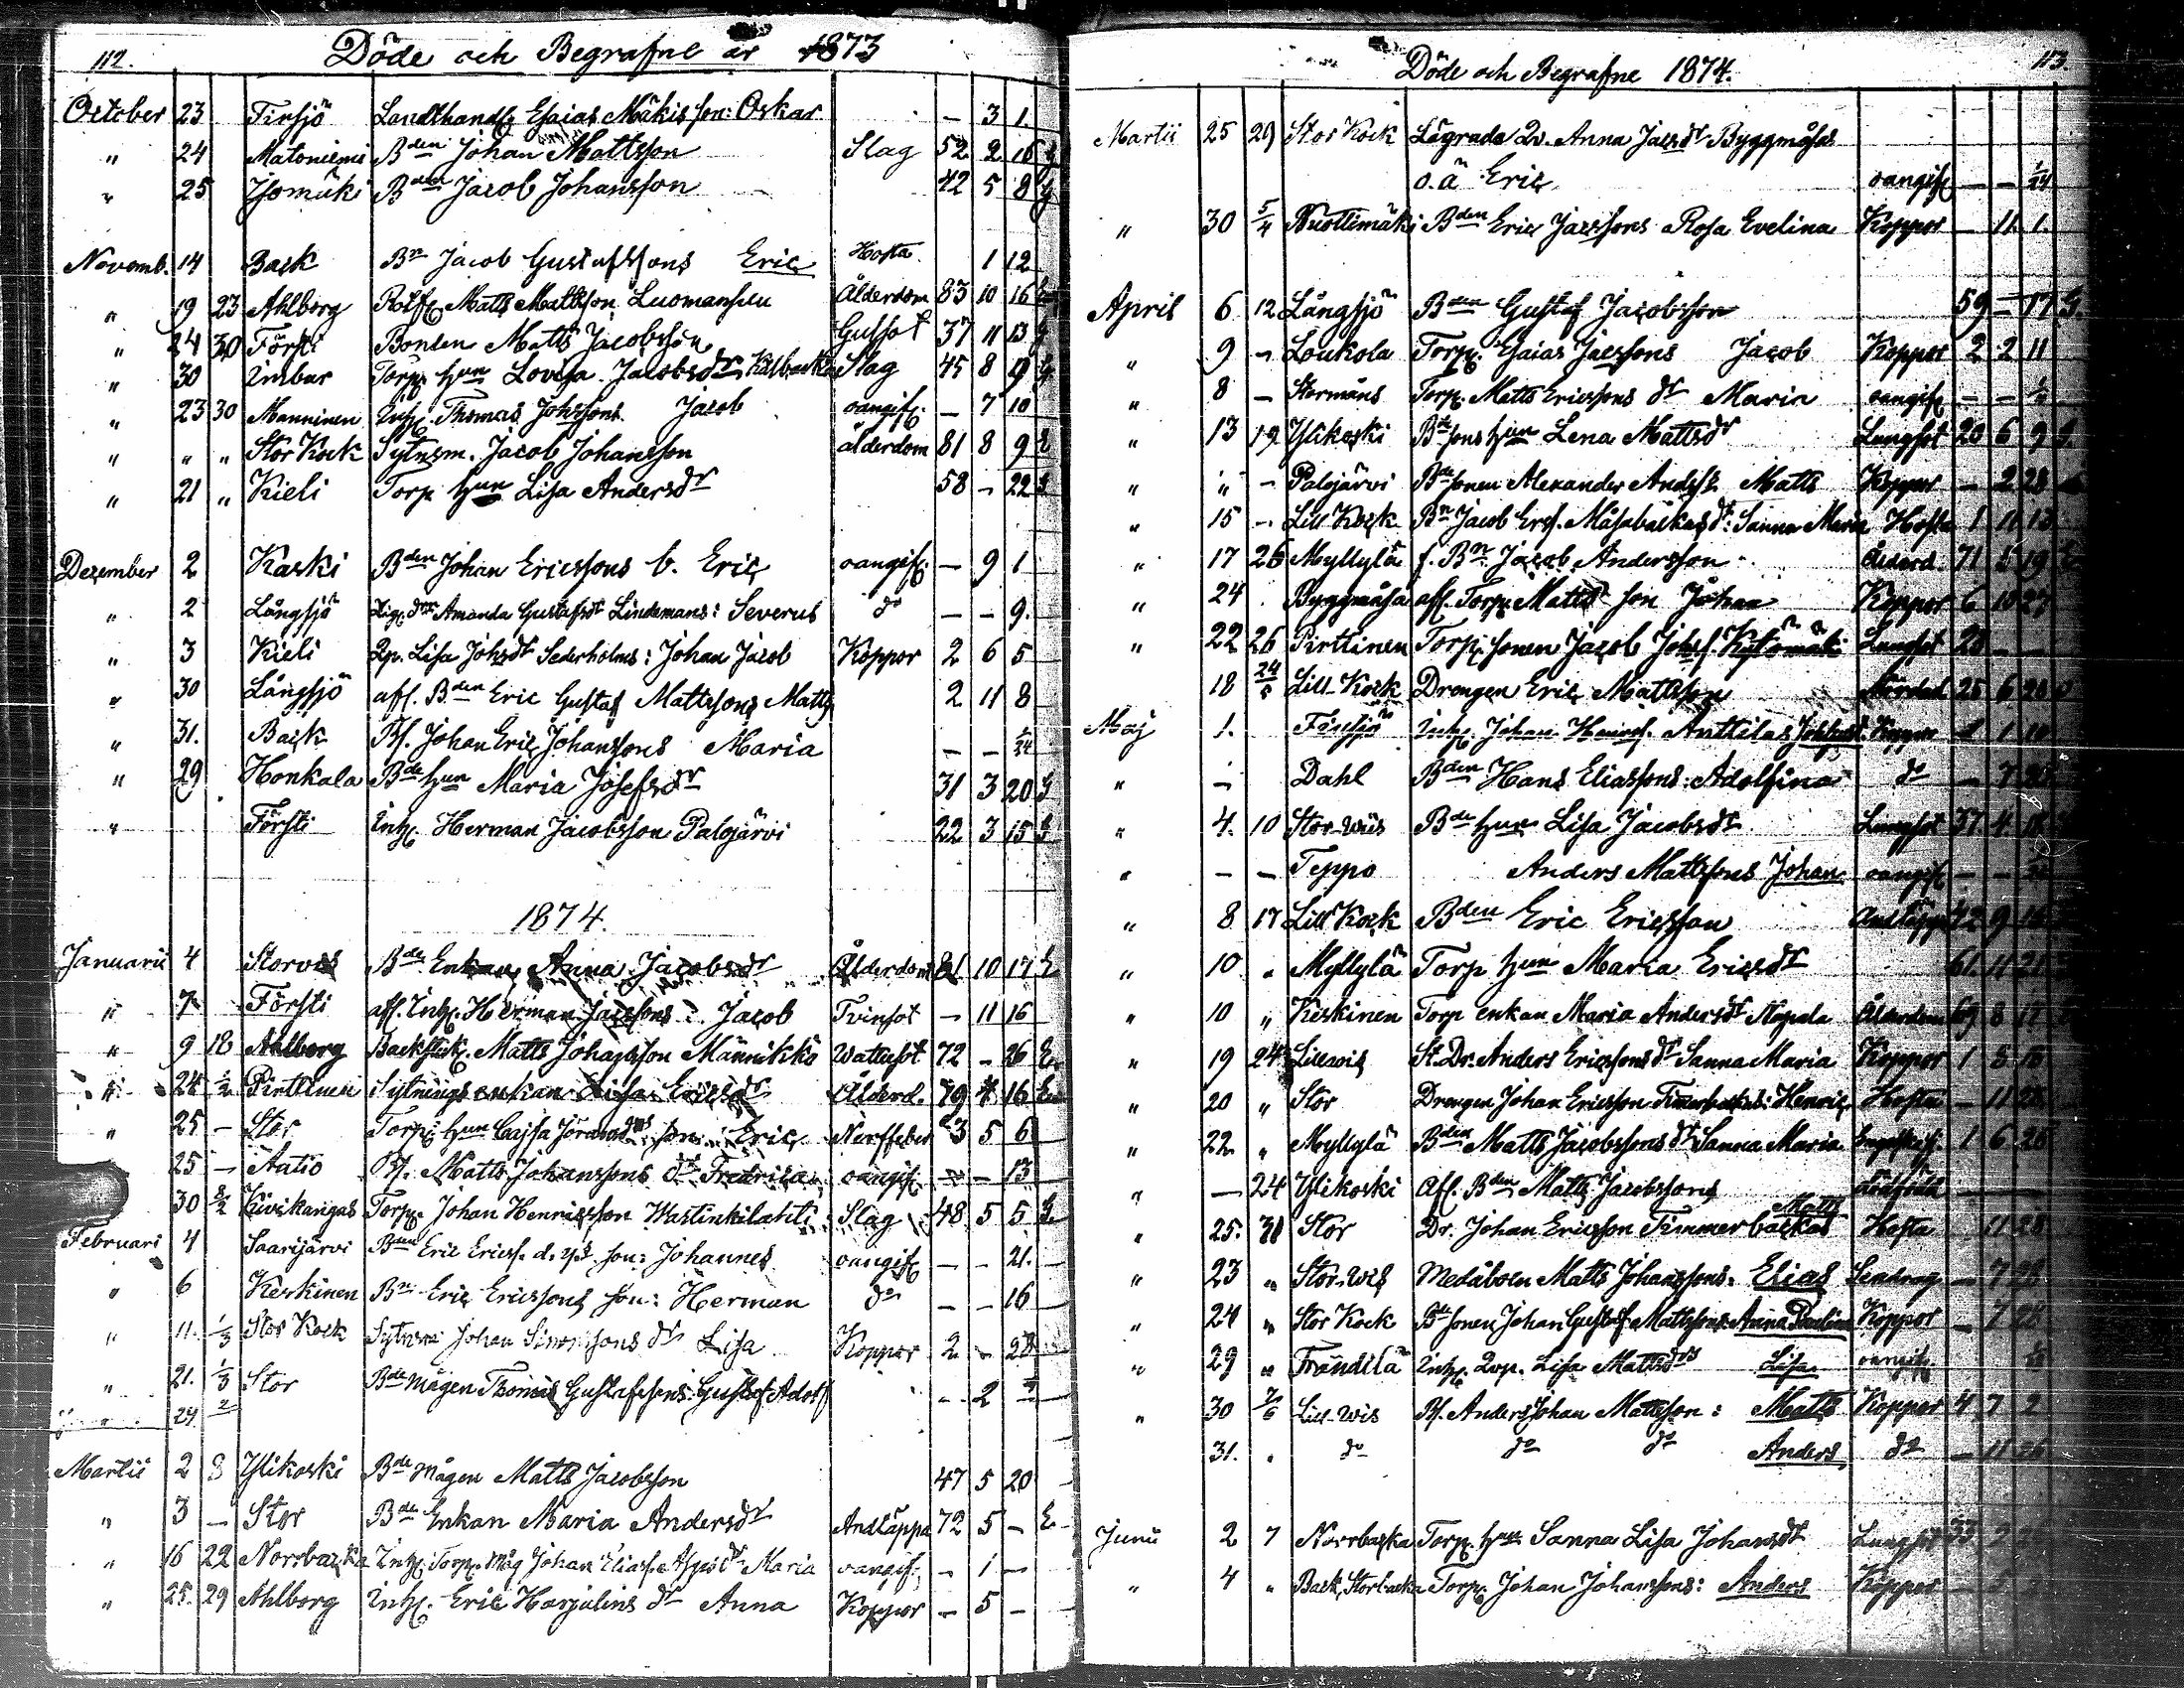 112.
Döde och Begrafne år 1873
October 23 Finsjö Landthandl. Esaias Mäkis son: Oskar — 3 1.
" 24 Matoniemi Bden Johan Mattsson Slag 52 2 16 G
" 25 Isomäki Bden Jacob Johansson 42 5 8 G
Novemb. 14 Back Bn Jacob Gustafssons Eric Hosta 1 12
" 19 23 Ahlborg Matts Mattsson Luomansuu Ålderdom 83 10 16 E
" 24 30 Försti Bonden Matts Jacobsson Gulsot 37 11 13 G
" 30 Timbar Torp. hun Lovisa Jacobsdr Slag 45 8 9 G
" 23 30 Manninen Inh. Thomas Johssons Jacob oangif. — 7 10
" " " Stor Kock Sytnsm. Jacob Johansson ålderdom 81 8 9 E
" 21 " Kieli Torp hun Lisa Andersdr 58 — 22 G
Dezember 2 Kaski Bden Johan Ericssons b. Eric oangif. — 9 1
" 2 Långsjö Amanda Gustafsdr Lindemans: Severus do — — 9.
" 3 Kieli Qp. Lisa Johsdr Sederholms: Johan Jacob Koppor 2 6 5
" 30 Långsjö afl. Bden Eric Gustaf Mattssons Matts 2 11 8
" 31. Back Bs. Johan Eric Johanssons Maria — — 1/24
" 29 Honkala Bde hun Maria Josefsdr 31 3 20 G
" Försti Inh. Herman Jacobsson Palojärvi 22 3 15 G
1874.
Januarii 4 Storvis Bde Enkan Anna Jacobsdr Ålderdom 81 10 17 E
" 7 Försti afl. Inh. Herman Jacssons: Jacob Tvinsot — 11 16
" 9 18 Ahlborg Backstuk. Matts Johansson Männikkö Wattusot 72 — 26 E
" 24 1/2 Pirttinen Sytnings enkan Ericsdr Ålderd. 79 16 E
" 25 — Stor Torp. hun Cajsa son: Eric Nerffeber 3 5 6
25 — Autio Bs. Matts Johanssons dr Fredrika oangif. — — 13
30 8/2 Kivikangas Torp. Johan Henricsson Wastinkilahti Slag 48 5 5 G
Februari 4 Saarijärvi Bden Eric Ericss. d. y:s son: Johannes oangif. — — 21.
" 6 Keskinen Bn Eric Ericssons son: Herman do — — 16
" 11. 1/3 Stor Kock Sytnsm Johan Simonssons dr Lisa Koppor 2 — 28
" 21. 1/3 Stor Bde mågen Thomas Gustafssons: Gustaf Adolf — 2
24
Martii 2 8 Ylikoski Bde mågen Matts Jacobsson 47 5 20
" 3 — Stor Bde Enkan Maria Andersdr Andtäppa 72 5 — E
" 16 22 Norrbacka Inh. Torp. måg Johan Eliass. dr Maria oangif. — 1 —
" 25. 29 Ahlborg Inh. Eric Harjulins dr Anna Koppor — 5 —
113.
Döde och Begrafne 1874.
Martii 25 29 Stor Kock Lägrada Qv. Anna Jacsdr Byggmåsas
o.ä Eric oangif — — 1/24
" 30 5/4 Nuottimäki Bden Eric Jacssons Rosa Evelina Koppor — 11. 1.
April 6 12 Långsjö Bden Gustaf Jacobsson 59 — 17 G
" 9 — Loukola Torp. Esaias Jacssons Jacob Koppor 2 2 11
" 8 — Stormåns Torp. Matts Ericssons dr Maria oangif — —
" 13 19 Ylikoski Bde sons hun Lena Mattsdr Lungsot 20 6 9 G
" " — Palojärvi Bde sonen Alexander Anderss. Matts Koppor — 2 28
" 15 — Lill Kock Bn Jacob Ericss. Måsabackas dr: Sanna Maria Hosta 1 11 13
" 17 26 Myllylä f. Bn Jacob Andersson Ålderd. 71 5 19 E
" 24 Byggmåsa afl. Torp. Matts son Johan Koppor 6 10 27
" 22 26 Pirttinen Torp. sonen Jacob Johss. Kytömäki Lungsot 20 — —
18 24/5 Lill Kock Drengen Eric Mattsson Mördad 25 6 28
Maj 1. Finsjö Inh. Johan Henricss. Anttilas Koppor 1 1 10
" — Dahl Bden Hans Eliassons: Adolfina do — 7
" 4. 10 Stor-wiis Bde hun Lisa Jacobsdr Lungsot 37 4
" — — Teppo Anders Mattssons Johan oangif — —
" 8 17 Lill Kock Bden Eric Ericsson Andtäppa 72 9
" 10 " Myllylä Torp hun Maria Ericsdr 61 11 21
" 10 " Keskinen Torp enkan Maria Andersdr Ålderdom 69 8 17
" 19 24 Lillwis St. Dr. Anders Ericssons dr Sanna Maria Koppor 1 5
" 20 " Stor Drengen Johan Ericsson Timmerbackas: Henric Hosta — 11 28
" 22 " Myllylä Bden Matts Jacobssons dr Sanna Maria 1 6 28
" — 24 Ylikoski Afl. Bden Matts Jacobssons dödfödd — —
" 25. 31 Stor Dr. Johan Ericsson Timmerbackas Matts Hosta 11 28
" 23 " Stor-wis Medåboen Matts Johanssons: Elias Sendrag — 7
" 24 " Stor Kock Bde sonen Johan Gustaf Mattssons: Anna Paulina Koppor — 7 28
" 29 " Frändilä Inh. Qvp. Lisa Mattsdrs Lisa oangif.
" 30 7/6 Lill-wis Bs. Anders Johan Mattsson: Matts Koppor 4 7 2
31. " do do do Anders do — 11 26
Junii 2 7 Norrbacka Torp. hun Sanna Lisa Johansdr Lungsot 33
" 4 " Back, Storbacka Torp. Johan Johanssons: Anders Koppor